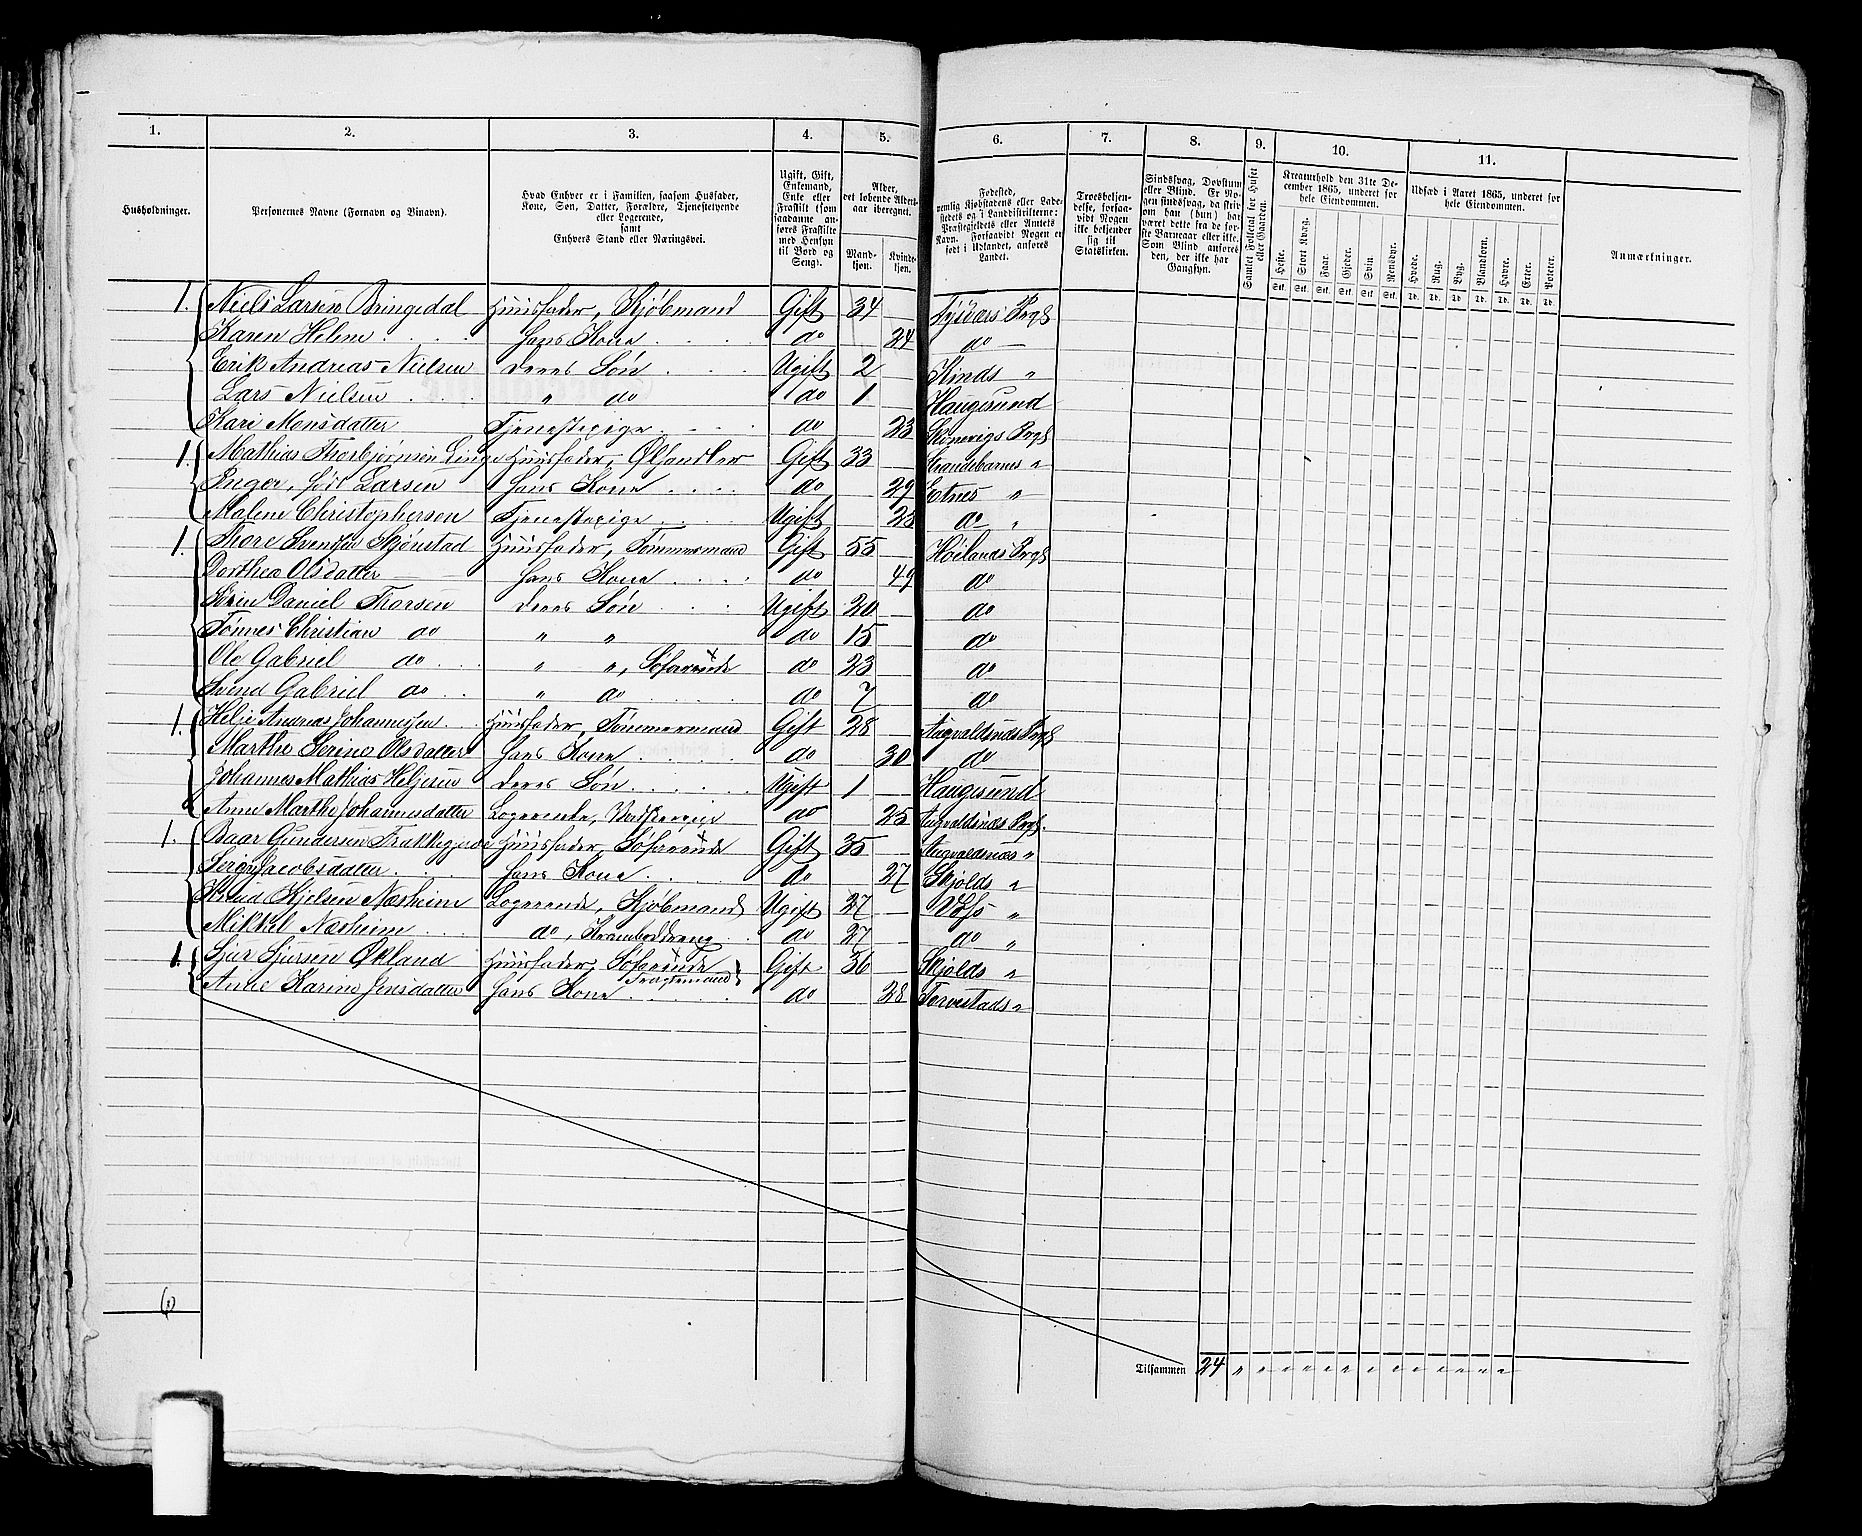 1. 2. 3. 4. 5. 6. 7. 8. 9. 10. 11.
Husholdninger. Personernes Navne (Fornavn og Binavn). Hvad Enhver er i Familien, saasom Husfader, Kone, Søn, Datter, Forældre, Tjenestetyende eller Logerende, samt Enhvers Stand eller Næringsvei. Ugift, Gift, Enkemand, Enke eller Fraskilt (som saadanne anføres Fraskilte med Hensyn til Bord og Seng). Alder, det løbende Aldersaar iberegnet. Mandkjøn. Kvindekjøn.
Fødested, nemlig Kjøbstadens eller Ladestedets og i Landdistrikterne: Præstegjeldets eller Amtets Navn. Forsaavidt Nogen er født i Udlandet, anføres Landet. Troesbekjendelse, forsaavidt Nogen ikke bekjender sig til Statskirken. Sindssvag, Døvstum eller Blind. Er Nogen sindssvag, da skriv om han (hun) har været dette fra de første Barneaar eller ikke. Som Blind anføres den, der ikke har Gangsyn. Samlet Folketal for Huset eller Gaarden. Kreaturhold den 31te December 1865, underet for hele Eiendommen. Udsæd i Aaret 1865, underet for hele Eiendommen. Anmærkninger.
Heste. Stort Kvæg. Faar. Gjeder. Svin. Rensdyr. Hvede. Rug. Byg. Blandkorn. Havre. Erter. Poteter.
Stk. Stk. Stk. Stk. Stk. Stk. Td. Td. Td. Td. Td. Td. Td.
1. Niels Larsen Bringedal Huusfader, Kjøbmand Gift 34 Tysvärs Prgl
Karen Helene hans Kone do 24 do
Erik Andreas Nielsen deres Søn Ugift 2 Kinds "
Lars Nielsen " do do 1 Haugesund
Kari Monsdatter Tjenestepige do 23 Skonevigs Prgl
1. Mathias Thorbjørnsen Linge Huusfader, Ølhandler Gift 33 Strandebarms "
Inger, född Larsen hans Kone do 29 Etnes "
Malene Christophersen Tjenestepige Ugift 23 do "
1. Thore Svendsen Skjønstad Huusfader, Tømmermand Gift 55 Høilands Prgl
Dorthea Olsdatter hans Kone do 49 do
Sörin Daniel Thorsen deres Søn Ugift 20 do
Tönnes Christian do " " do 15 do
Ole Gabriel do " ", Søfarende do 23 do
Svend Gabriel do " do do 7 do
1. Helje Andreas Johannesen Huusfader, Tømmermand Gift 28 Augvaldsnæs Prgl
Marthe Serine Olsdatter hans Kone do 30 do
Johannes Mathias Heljesen deres Søn Ugift 1 Haugesund
Anne Marthe Johannesdatter Logerende, do 25 Augvaldsnæs Prgl.
1. Baar Gundersen Huusfader, Søfarende Gift 35 Augvaldsnæs "
Jacobsdatter hans Kone do 27 Skjolds "
Knud Kjelsen Næsheim Logerende, Kjøbmand Ugift 27 Voss "
Mikkel Næsheim do, Kramboddreng do 27 do "
1. Sjur Sjursen Økland Huusfader, Søfarende Fragtemand Gift 36 Skjolds "
Anne Karine Jensdatter hans Kone do 28 Torvestads "
6
Tilsammen 24 " " " " " " " " " " " " " "